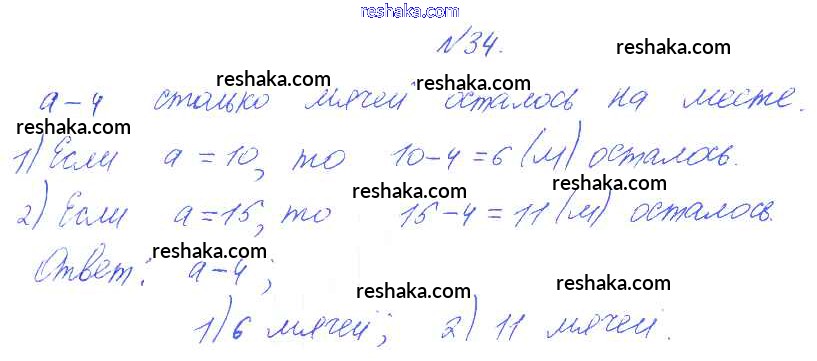 reshaka.com
№34.
reshaka.com reshaka.com
а-4 столько мячей осталось на месте.
reshaka.com reshaka.com
1) Если а=10, то 10-4=6 (м) осталось.
reshaka.com reshaka.com reshaka.com
2) Если а=15, то 15-4=11 (м) осталось.
reshaka.com
Ответ: а-4;
reshaka.com reshaka.com
1) 6 мячей; 2) 11 мячей.